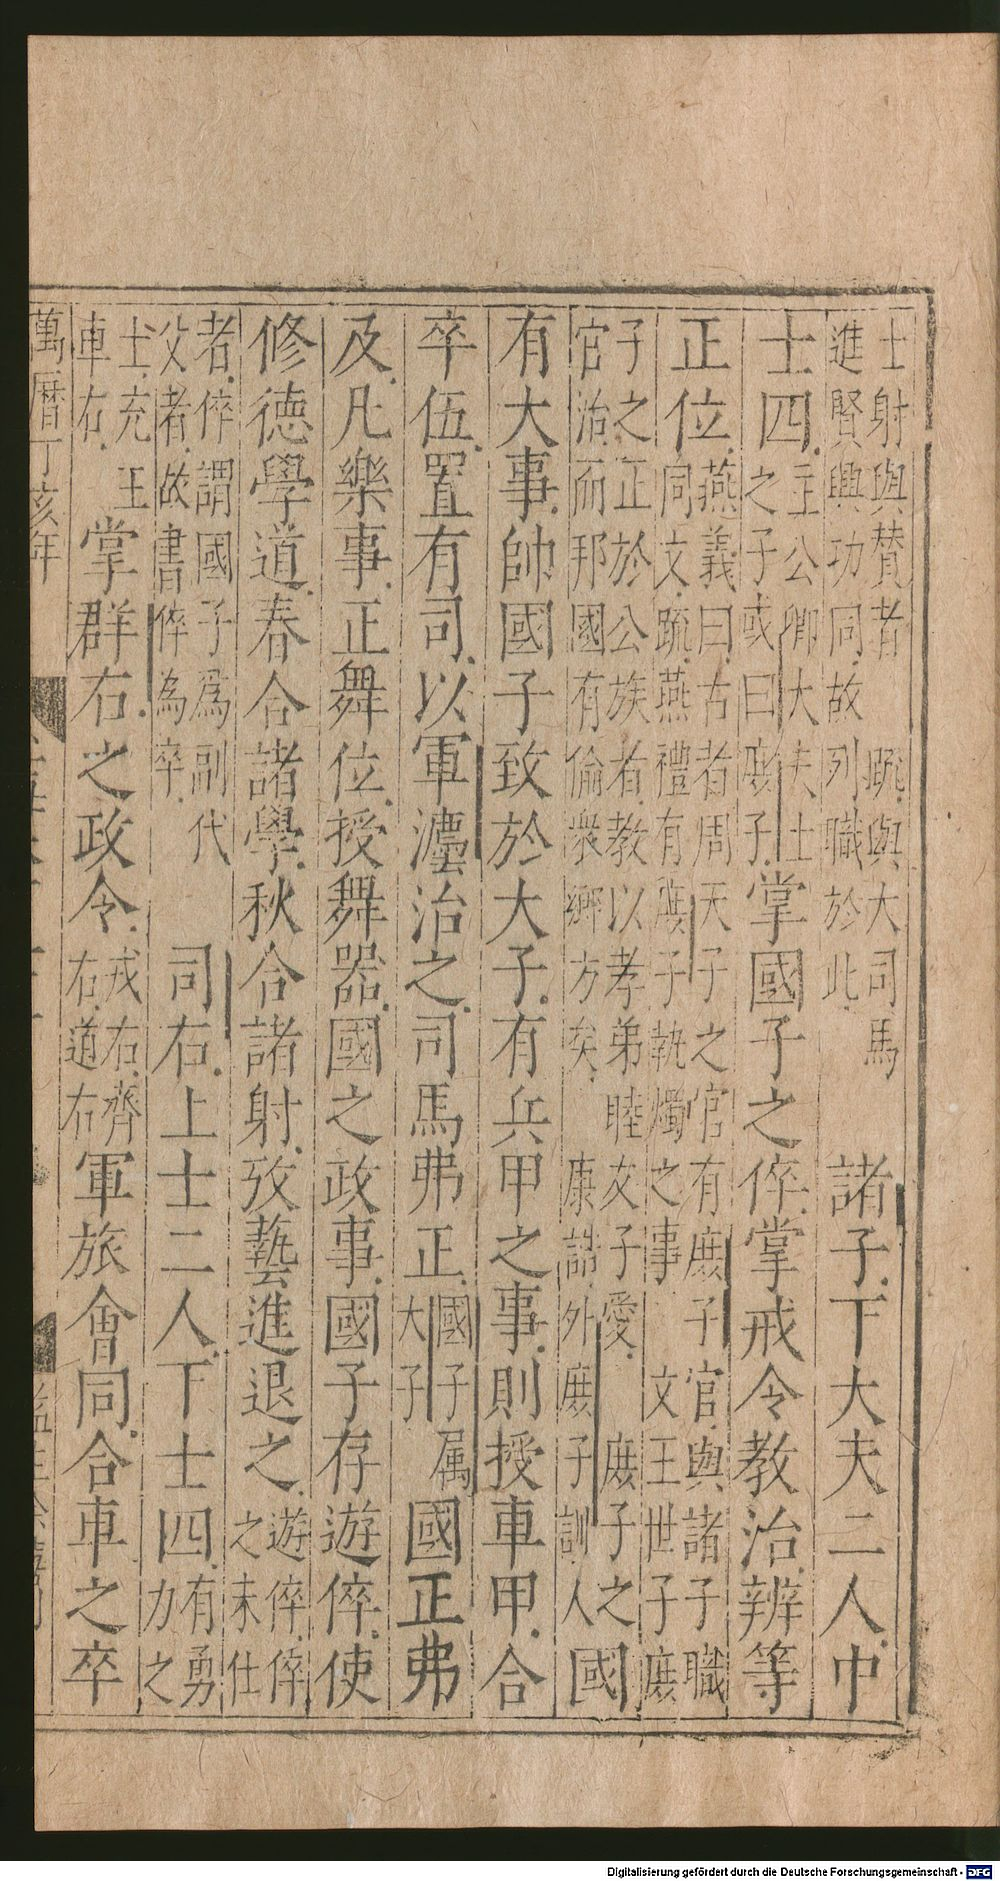 士射與贊者 疏與大司馬
進賢興功同故列職於此
諸子下大夫二人中
士四
主公卿大夫士
之子或曰庶子
掌國子之倅掌戒令教治辨等
正位
燕義曰古者周天子之官有庶子官與諸子職
同文疏燕禮有庶子執燭之事 文王世子庶
子之正於公族者教以孝弟睦友子愛 庶子之
官治而邦國有倫衆鄉方矣 康誥外庶子訓人
國
有大事帥國子致於大子有兵甲之事則授車甲合
卒伍置有司以軍灋治之司馬弗正
國子属
大子
國正弗
及凡樂事正舞位授舞器國之政事國子存遊倅使
修德學道春合諸學秋合諸射攷藝進退之
遊倅倅
之未仕
者倅謂國子爲副代
父者故書倅為卒
司右上士二人下士四
有勇
力之
士充王
車右
掌群右之政令
戎右齊
右道右
軍旅會同合車之卒
萬曆丁亥年
Digitalisierung gefördert durch die Deutsche Forschungsgemeinschaft - DFG